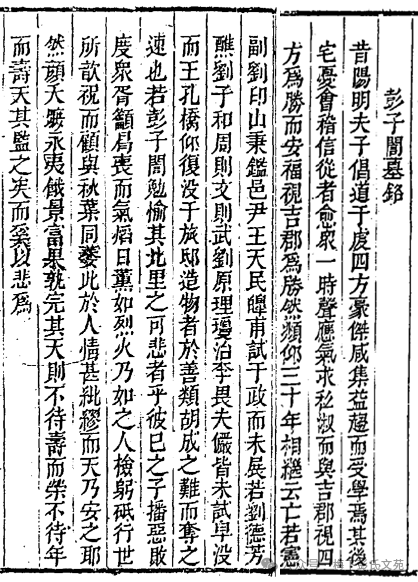 彭子闇墓銘
昔陽明夫子倡道于虔四方豪傑咸集益趨而受學焉其後
宅憂會稽信從者愈眾一時聲應氣求私淑而與吉郡視四
方爲勝而安福視吉郡爲勝然頫仰三十年相繼云亡若憲
副劉印山秉鑑邑尹王天民皥甫試于政而未展若劉德芳
醮劉子和周則文則武劉原理治李畏夫儼皆未試早没
而王孔橋仰復没于旅邸造物者於善類胡成之難而奪之
速也若彭子闇勉愉其里之可悲者乎彼巳之子播惡敗
度衆胥籲曷喪而氣熖日薰如烈火乃如之人檢躬砥行世
所歆祝而顧與秋葉同蘀此於人情甚紕繆而天乃安之耶
然顏夭永夷餓景富果孰完其天則不待壽而榮不待年
而壽天其監之矣而奚以悲爲
氏文苑